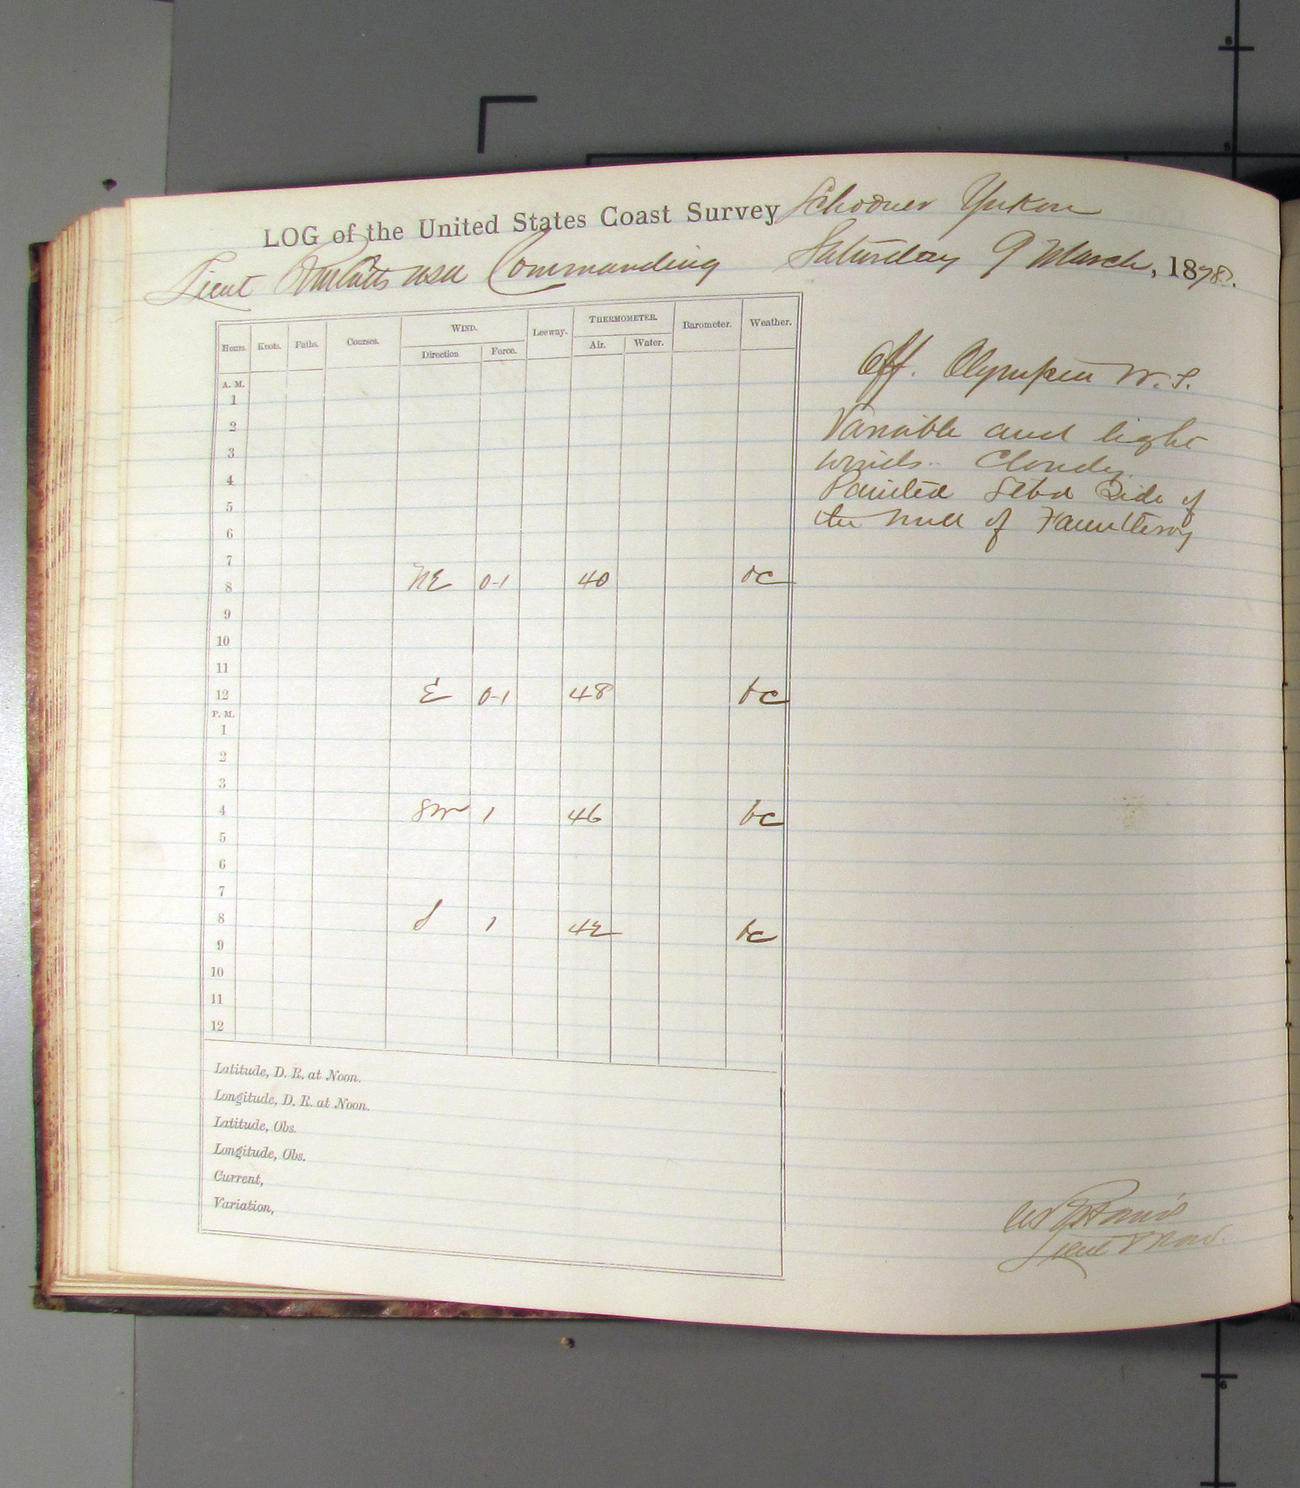 LOG of the United States Coast Survey Schooner Yukon
Lieut USN Commanding Saturday 9 March, 1878.
Hours. Knots. Faths. Courses. WIND. Leeway. THERMOMETER. Barometer. Weather.
Direction Force. Air. Water.
A. M.
1
2
3
4
5
6
7
8 NE 0-1 40 bc
9
10
11
12 E 0-1 48 bc
P. M.
1
2
3
4 SW 1 46 bc
5
6
7
8 S 1 42 bc
9
10
11
12
Latitude, D. R. at Noon.
Longitude, D. R. at Noon.
Latitude, Obs.
Longitude, Obs.
Current,
Variation,
Off. Olympia W. T.
Variable and light
winds. Cloudy.
Painted Stbd Side of
the hull of Fauntleroy
Lieut